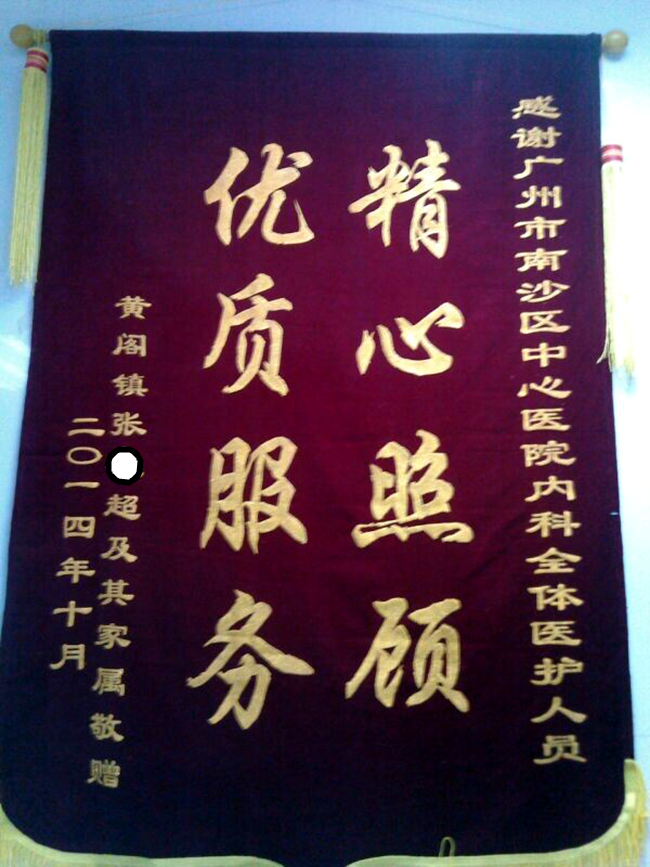 感谢广州市南沙区中心医院内科全体医护人员
精心照顾
优质服务
黄阁镇张超及其家属敬赠
二〇一四年十月